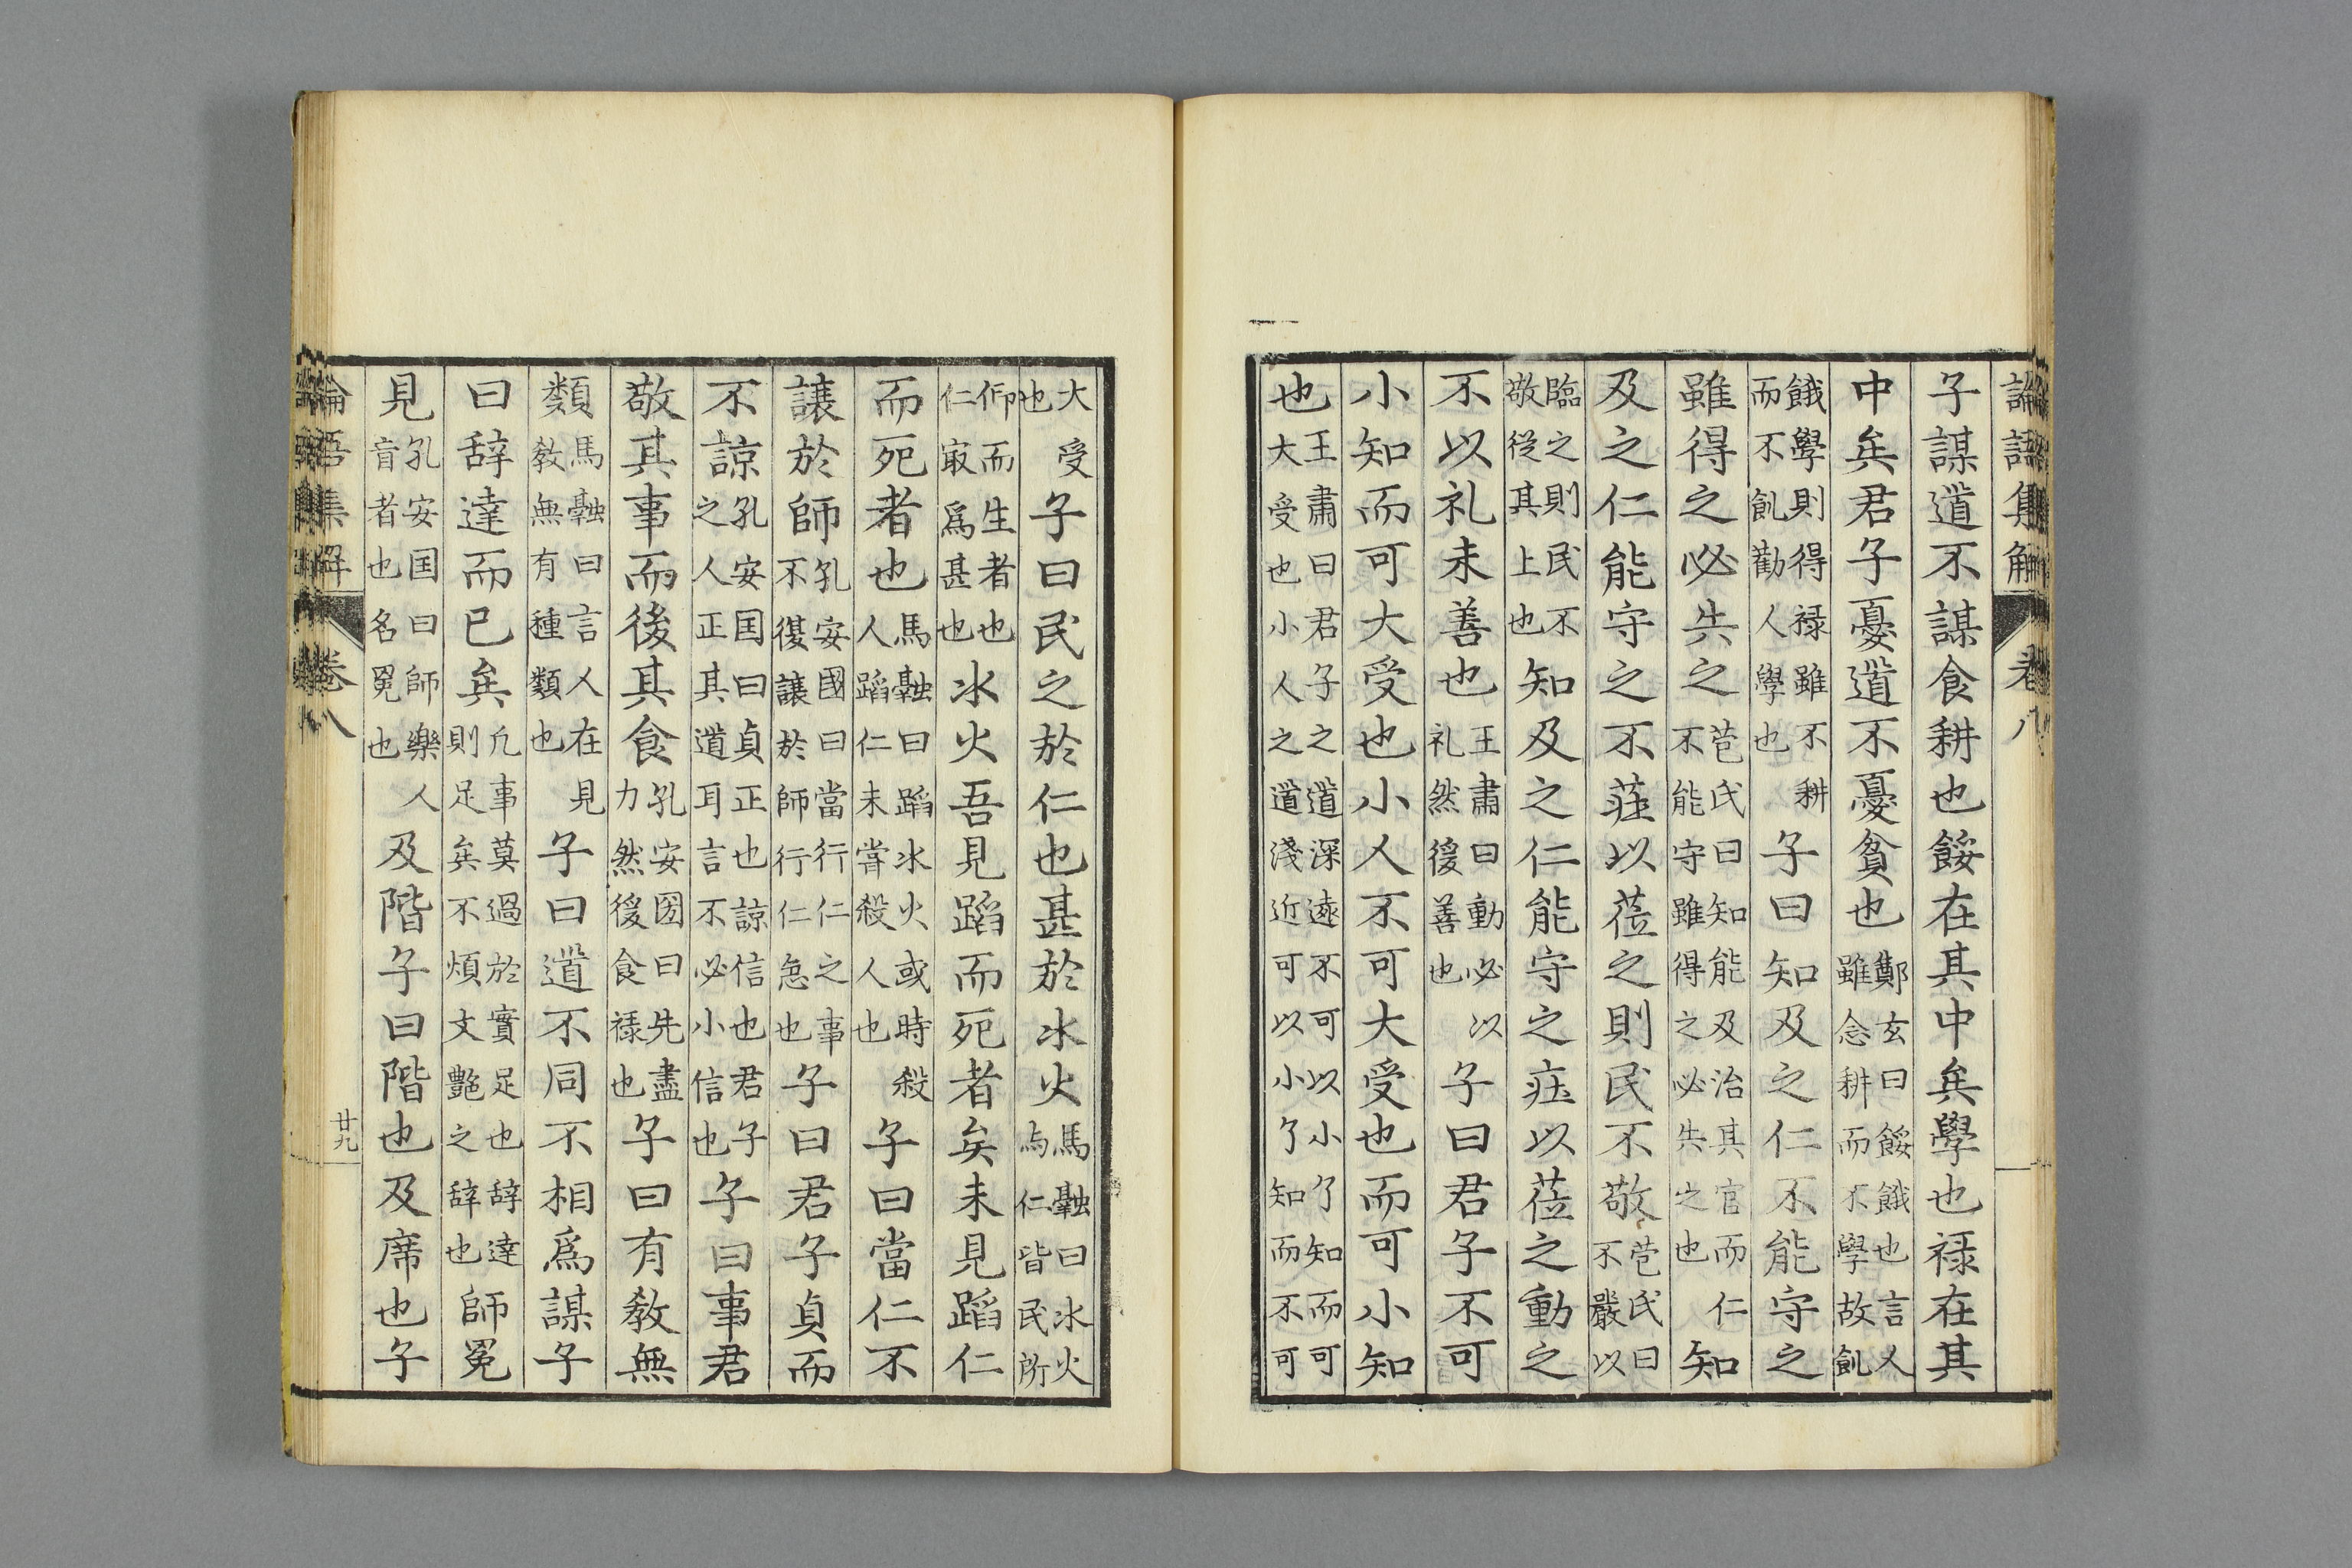 論語集解 卷八
子謀道不謀食耕也餒在其中矣學也禄在其
中矣君子憂道不憂貧也鄭玄曰餒餓也言人雖念耕而不學故飢
餓學則得禄雖不耕而不飢勸人學也子曰知及之仁不能守之
雖得之必失之苞氏曰知能及治其官而仁不能守雖得之必失之也知
及之仁能守之不莊以莅之則民不敬苞氏曰不嚴以
臨之則民不敬從其上也知及之仁能守之庄以莅之動之
不以礼未善也王肅曰動必以礼然後善也子曰君子不可
小知而可大受也小人不可大受也而可小知
也王肅曰君子之道深遠不可以小了知而可大受也小人之道淺近可以小了知而不可
大受也子曰民之於仁也甚於水火馬融曰水火与仁皆民所
仰而生者也仁冣爲甚也水火吾見蹈而死者矣未見蹈仁
而死者也馬融曰蹈水火或時殺人蹈仁未甞殺人也子曰當仁不
讓於師孔安國曰當行仁之事不復讓於師行仁急也子曰君子貞而
不諒孔安囯曰貞正也諒信也君子之人正其道耳言不必小信也子曰事君
敬其事而後其食孔安囻曰先盡力然後食禄也子曰有敎無
類馬融曰言人在見敎無有種類也子曰道不同不相爲謀子
曰辞達而已矣凡事莫過於實足也辞達則足矣不煩文艶之辞也師冕
見孔安囯曰師樂人盲者也名冕也及階子曰階也及席也子
論語集解 卷八 廿九